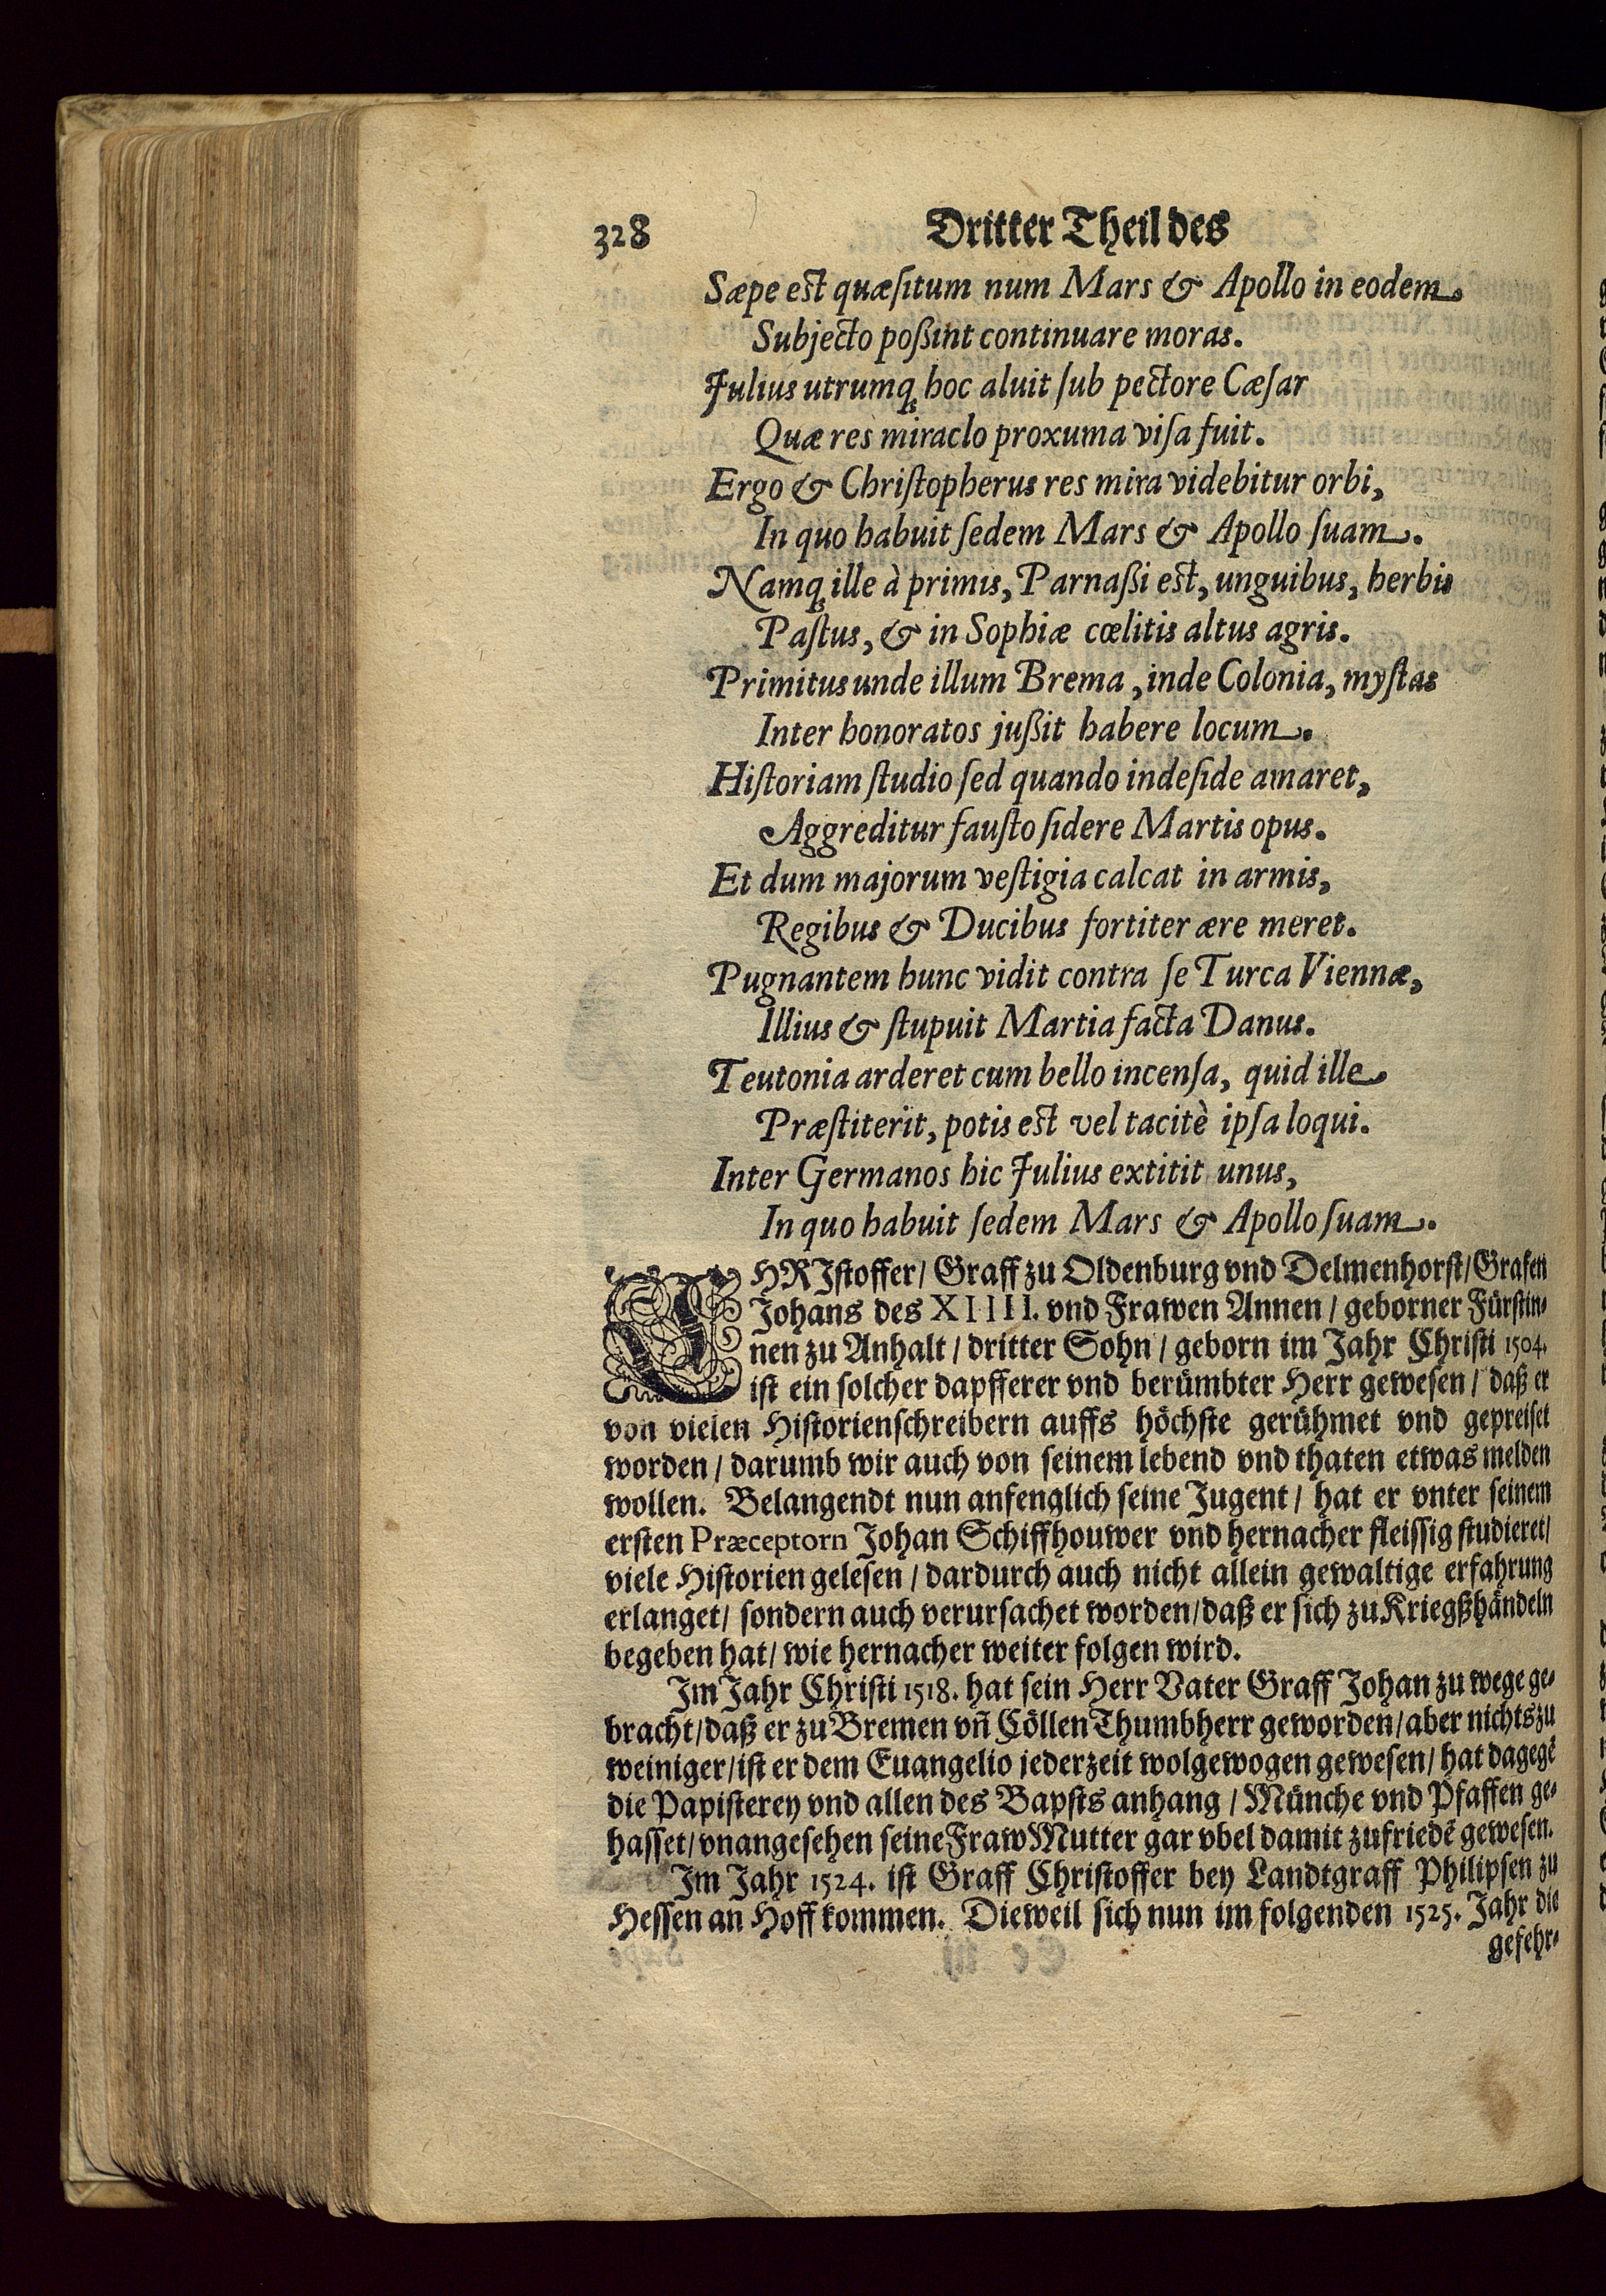 328 Dritter Theil des
Sæpe est quæsitum num Mars & Apollo in eodem.
Subjecto poßint continuare moras.
Julius utrumq; hoc aluit sub pectore Cæsar
Quæ res miraclo proxuma visa fuit.
Ergo & Christopherus res mira videbitur orbi,
In quo habuit sedem Mars & Apollo suam.
Namq; ille à primis, Parnaßi est, unguibus, herbis
Pastus, & in Sophiæ cœlitis altus agris.
Primitus unde illum Brema, inde Colonia, mystas
Inter honoratos jußit habere locum.
Historiam studio sed quando indeside amaret,
Aggreditur fausto sidere Martis opus.
Et dum majorum vestigia calcat in armis,
Regibus & Ducibus fortiter ære meret.
Pugnantem hunc vidit contra se Turca Viennæ,
Illius & stupuit Martia facta Danus.
Teutonia arderet cum bello incensa, quid ille
Præstiterit, potis est vel tacitè ipsa loqui.
Inter Germanos hic Julius extitit unus,
In quo habuit sedem Mars & Apollo suam.
CHRIstoffer/ Graff zu Oldenburg vnd Delmenhorst/ Grafen
Johans des XIIII. vnd Frawen Annen / geborner Fürstin-
nen zu Anhalt / dritter Sohn / geborn im Jahr Christi 1504.
ist ein solcher dapfferer vnd berümbter Herr gewesen / daß er
von vielen Historienschreibern auffs höchste gerühmet vnd gepreiset
worden / darumb wir auch von seinem lebend vnd thaten etwas melden
wollen. Belangendt nun anfenglich seine Jugent / hat er vnter seinem
ersten Præceptorn Johan Schiffhouwer vnd hernacher fleissig studieret/
viele Historien gelesen / dardurch auch nicht allein gewaltige erfahrung
erlanget/ sondern auch verursachet worden/ daß er sich zu Kriegßhändeln
begeben hat/ wie hernacher weiter folgen wird.
Im Jahr Christi 1518. hat sein Herr Vater Graff Johan zu wege ge-
bracht/ daß er zu Bremen vñ Cöllen Thumbherr geworden/ aber nichts zu
weiniger/ ist er dem Euangelio jederzeit wolgewogen gewesen/ hat dagegẽ
die Papisterey vnd allen des Bapsts anhang / Münche vnd Pfaffen ge-
hasset/ vnangesehen seine Fraw Mutter gar vbel damit zufriedẽ gewesen.
Im Jahr 1524. ist Graff Christoffer bey Landtgraff Philipsen zu
Hessen an Hoff kommen. Dieweil sich nun im folgenden 1525. Jahr die
gefehr-